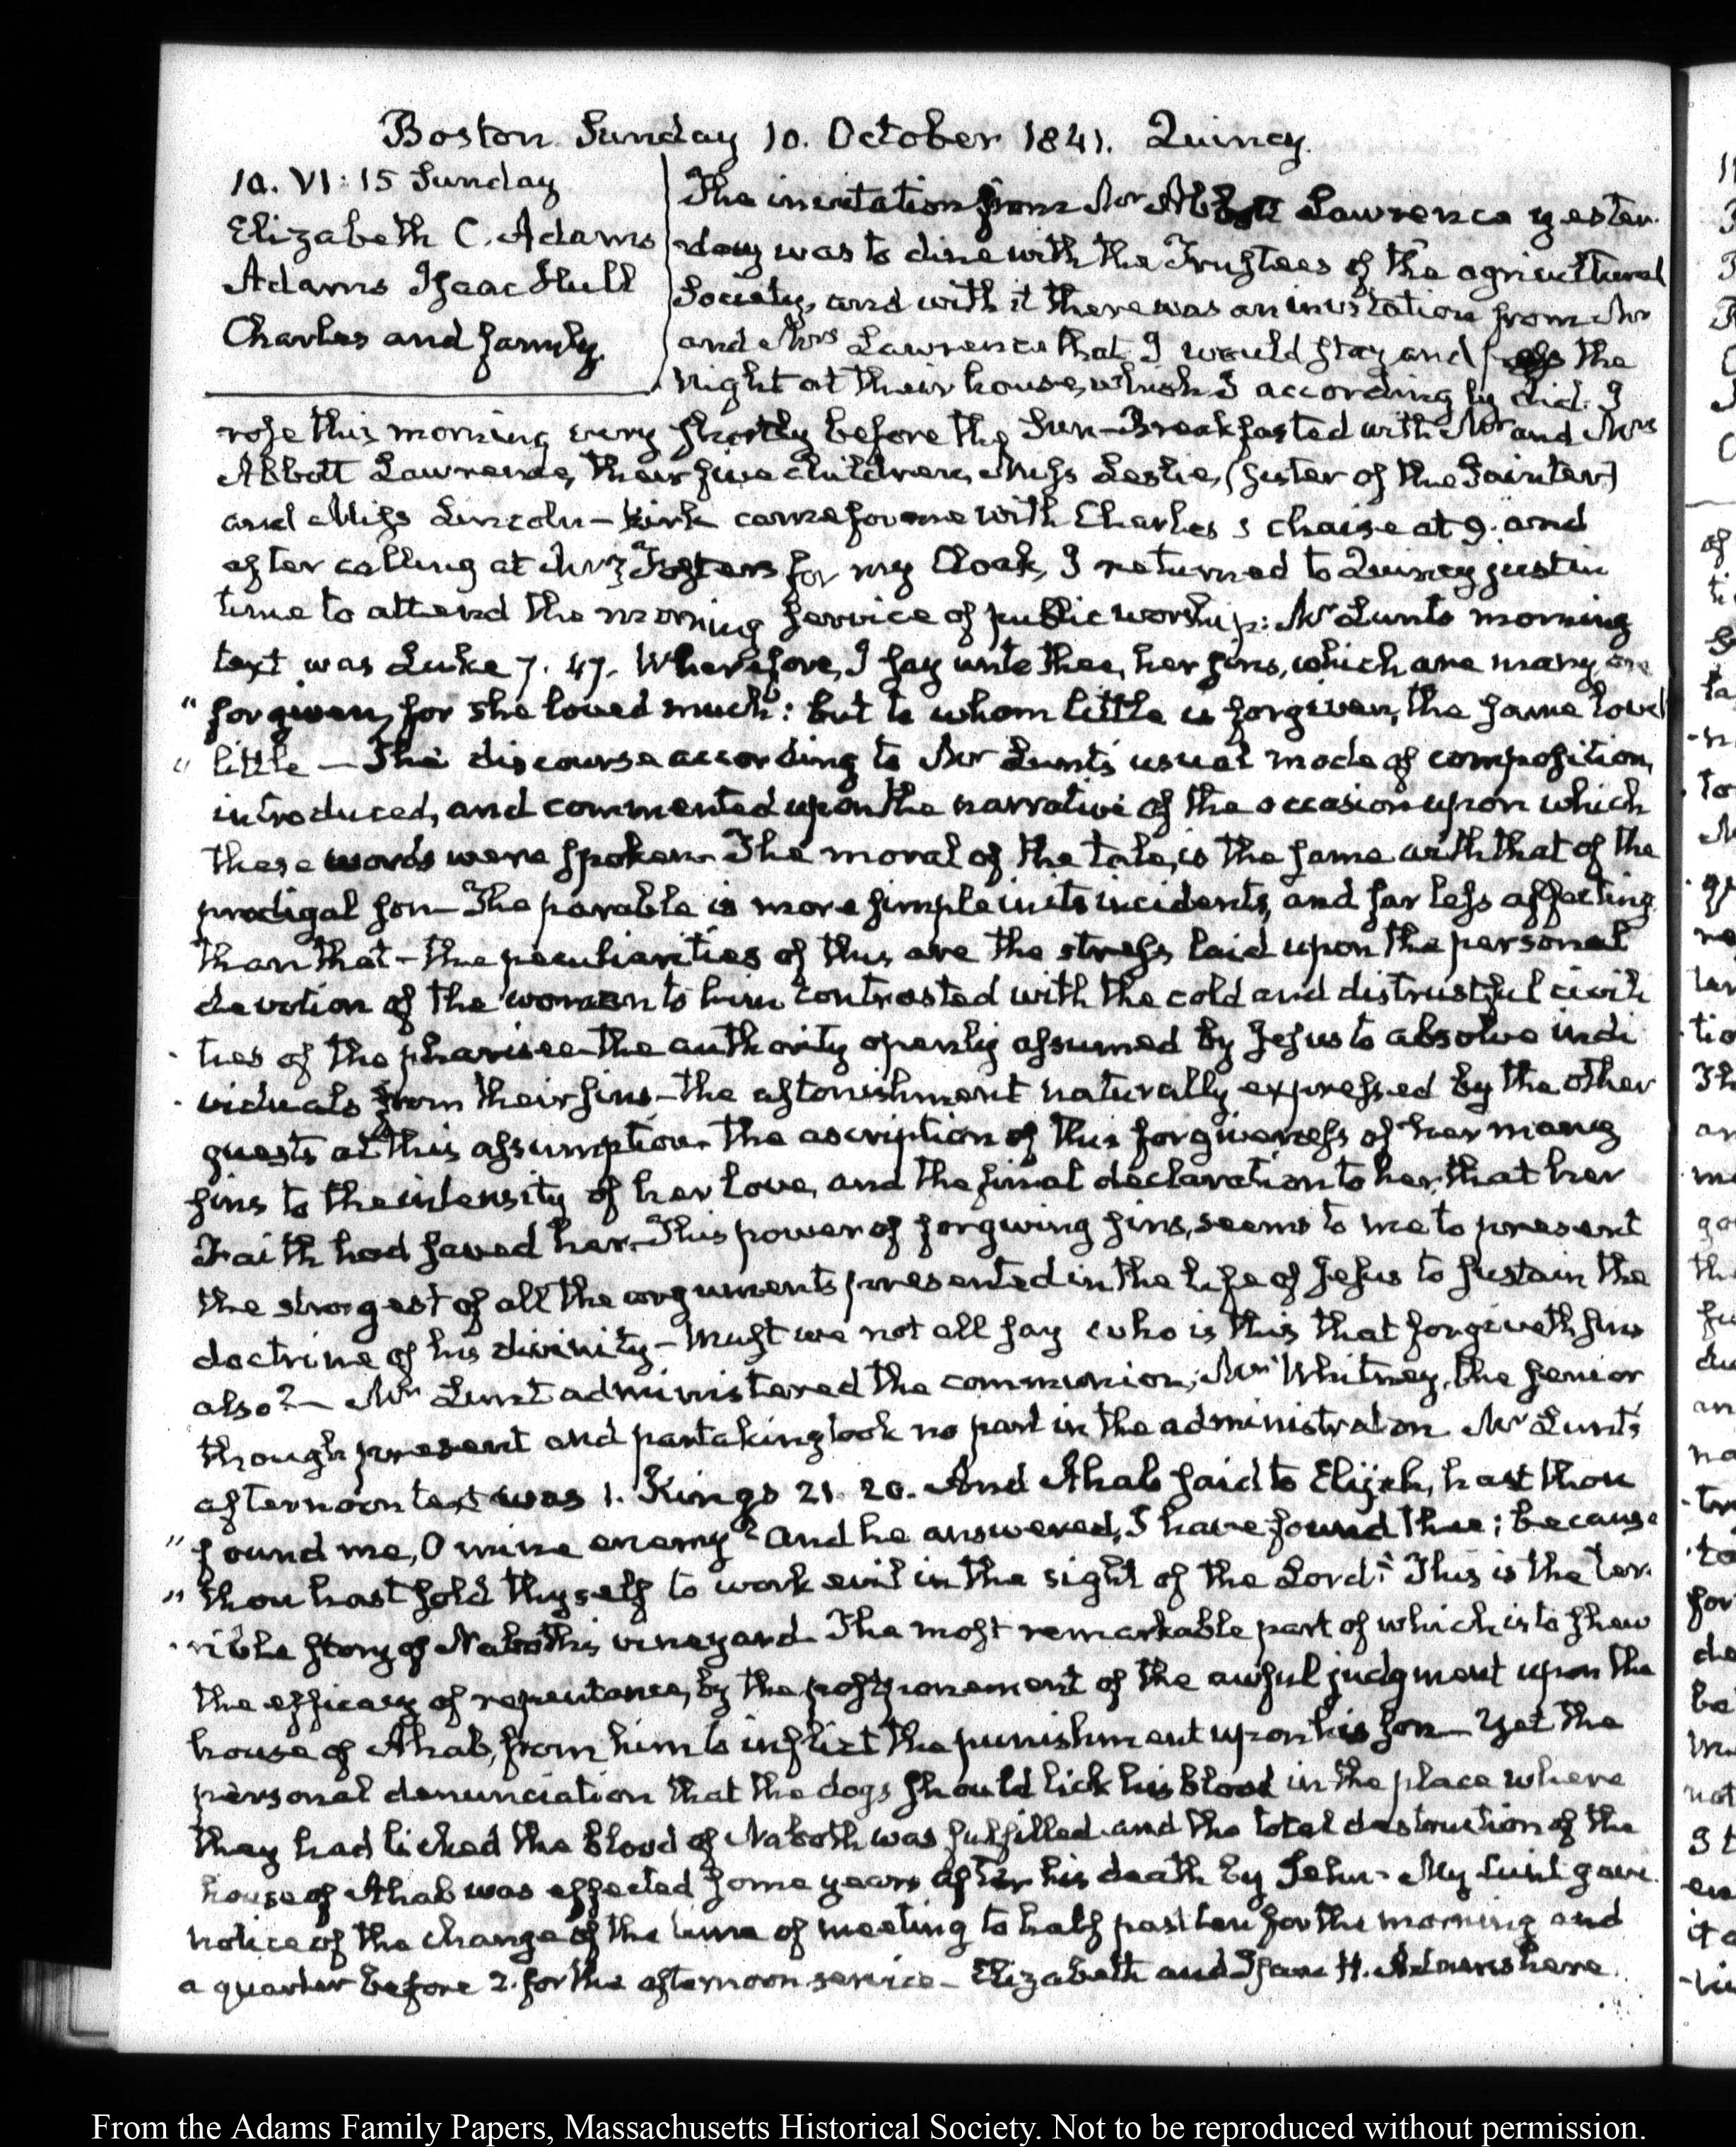 Boston Sunday 10. October 1841. Quincy.
10. VI:15 Sunday
Elizabeth C. Adams
Adams Isaac Hull
Charles and family.
The invitation from Mr Abbott Lawrence yester-
day was to dine with the Trustees of the agricultural
Society, and with it there was an invitation from Mr
and Mrs Lawrence that I would stay and pass the
night at their house, which I accordingly did. I
rose this morning very shortly before the Sun—Breakfasted with Mr and Mrs
Abbott Lawrence, their five children, Miss Leslie, (sister of the Painter)
and Miss Lincoln—Kirk came for me with Charles's chaise at 9. and
after calling at Mrs Fosters for my Cloak, I returned to Quincy just in
time to attend the morning service of public worship: Mr Lunts morning
text was Luke 7. 47. Wherefore, I say unto thee, her sins, which are many are
" forgiven, for she loved much: but to whom little is forgiven, the same loveth
" little—The discourse according to Mr Lunt's usual mode of composition,
introduced, and commented upon the narrative of the occasion upon which
these words were spoken. The moral of the tale, is the same with that of the
prodigal son—The parable is more simple in its incidents, and far less affecting
than that—the peculiarities of this are the stress laid upon the personal
devotion of the woman to him contrasted with the cold and distrustful civili
- ties of the pharisee—the authority openly assumed by Jesus to absolve indi
- viduals from their sins—the astonishment naturally expressed by the other
guests at this assumption—the ascription of this forgiveness of her many
sins to the intensity of her love, and the final declaration to her, that her
Faith had saved her. This power of forgiving sins, seems to me to present
the strongest of all the arguments presented in the life of Jesus to sustain the
doctrine of his divinity—Must we not all say who is this that forgiveth sins
also?—Mr Lunt administered the communion; Mr Whitney, the senior
though present and partaking took no part in the administration Mr Lunt's
afternoon text was 1. Kings 21. 20. And Ahab said to Elijah, hast thou
" found me, O mine enemy? And he answered, I have found thee; because
" thou hast sold thyself to work evil in the sight of the Lord." This is the ter-
- rible story of Naboth's vineyard. The most remarkable part of which is to shew
the efficacy of repentance, by the postponement of the awful judgment upon the
house of Ahab, from him to inflict the punishment upon his son—Yet the
personal denunciation that the dogs should lick his blood in the place where
they had licked the blood of Naboth was fulfilled and the total destruction of the
house of Ahab was effected some years after his death by Jehu. Mr Lunt gave
notice of the change of the time of meeting to half past ten for the morning and
a quarter before 2. for the afternoon service—Elizabeth and Isaac H. Adams here.
From the Adams Family Papers, Massachusetts Historical Society. Not to be reproduced without permission.